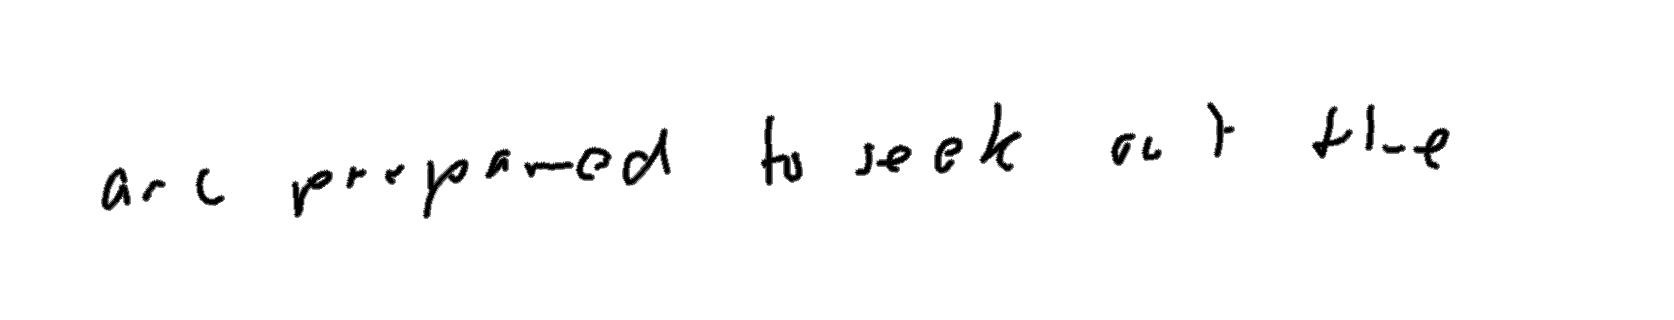 are prepared to seek out the